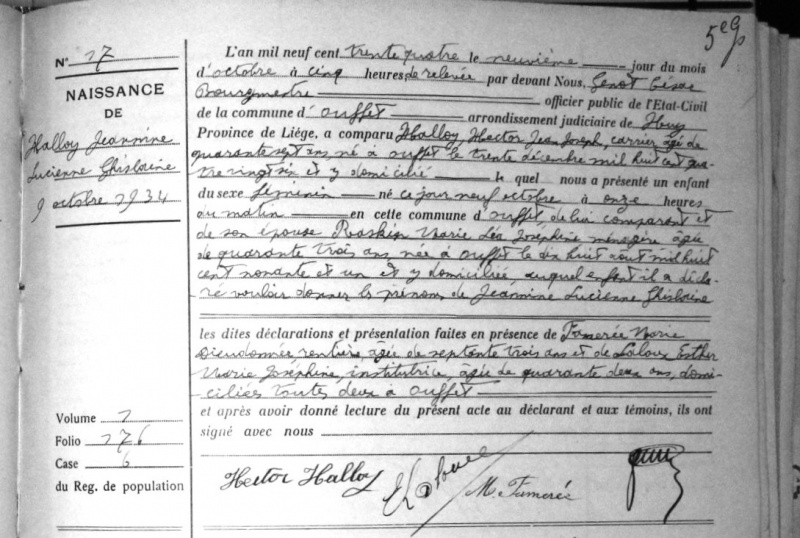 5e g
N° 17
NAISSANCE
DE
Halloy Jeannine
Lucienne Ghislaine
9 octobre 1934
L'an mil neuf cent trente quatre le neuvième jour du mois
d'octobre à cinq heures de relevée par devant Nous, Genot César
Bourgmestre officier public de l'Etat-Civil
de la commune d'Ouffet arrondissement judiciaire de Huy
Province de Liége, a comparu Halloy Hector Jean Joseph, carrier âgé de
quarante sept ans, né à Ouffet le trente décembre mil huit cent qua-
tre vingt six et y domicilié le quel nous a présenté un enfant
du sexe féminin né ce jour neuf octobre à onze heures
du matin en cette commune d'Ouffet de lui comparant et
de son épouse Raskin Marie Léa Joséphine ménagère âgée
de quarante trois ans, née à Ouffet le dix huit août mil huit
cent nonante et un et y domiciliée, auquel enfant il a décla-
ré vouloir donner les prénoms de Jeannine Lucienne Ghislaine
les dites déclarations et présentation faites en présence de Famerée Marie
Dieudonnée, rentière, âgée de septante trois ans et de Laloux Esther
Marie Joséphine, institutrice, âgée de quarante deux ans, domi-
ciliées toutes deux à Ouffet
et après avoir donné lecture du présent acte au déclarant et aux témoins, ils ont
signé avec nous
Volume 1
Folio 176
Case 6
du Reg. de population
Hector Halloy E Laloux M. Famerée